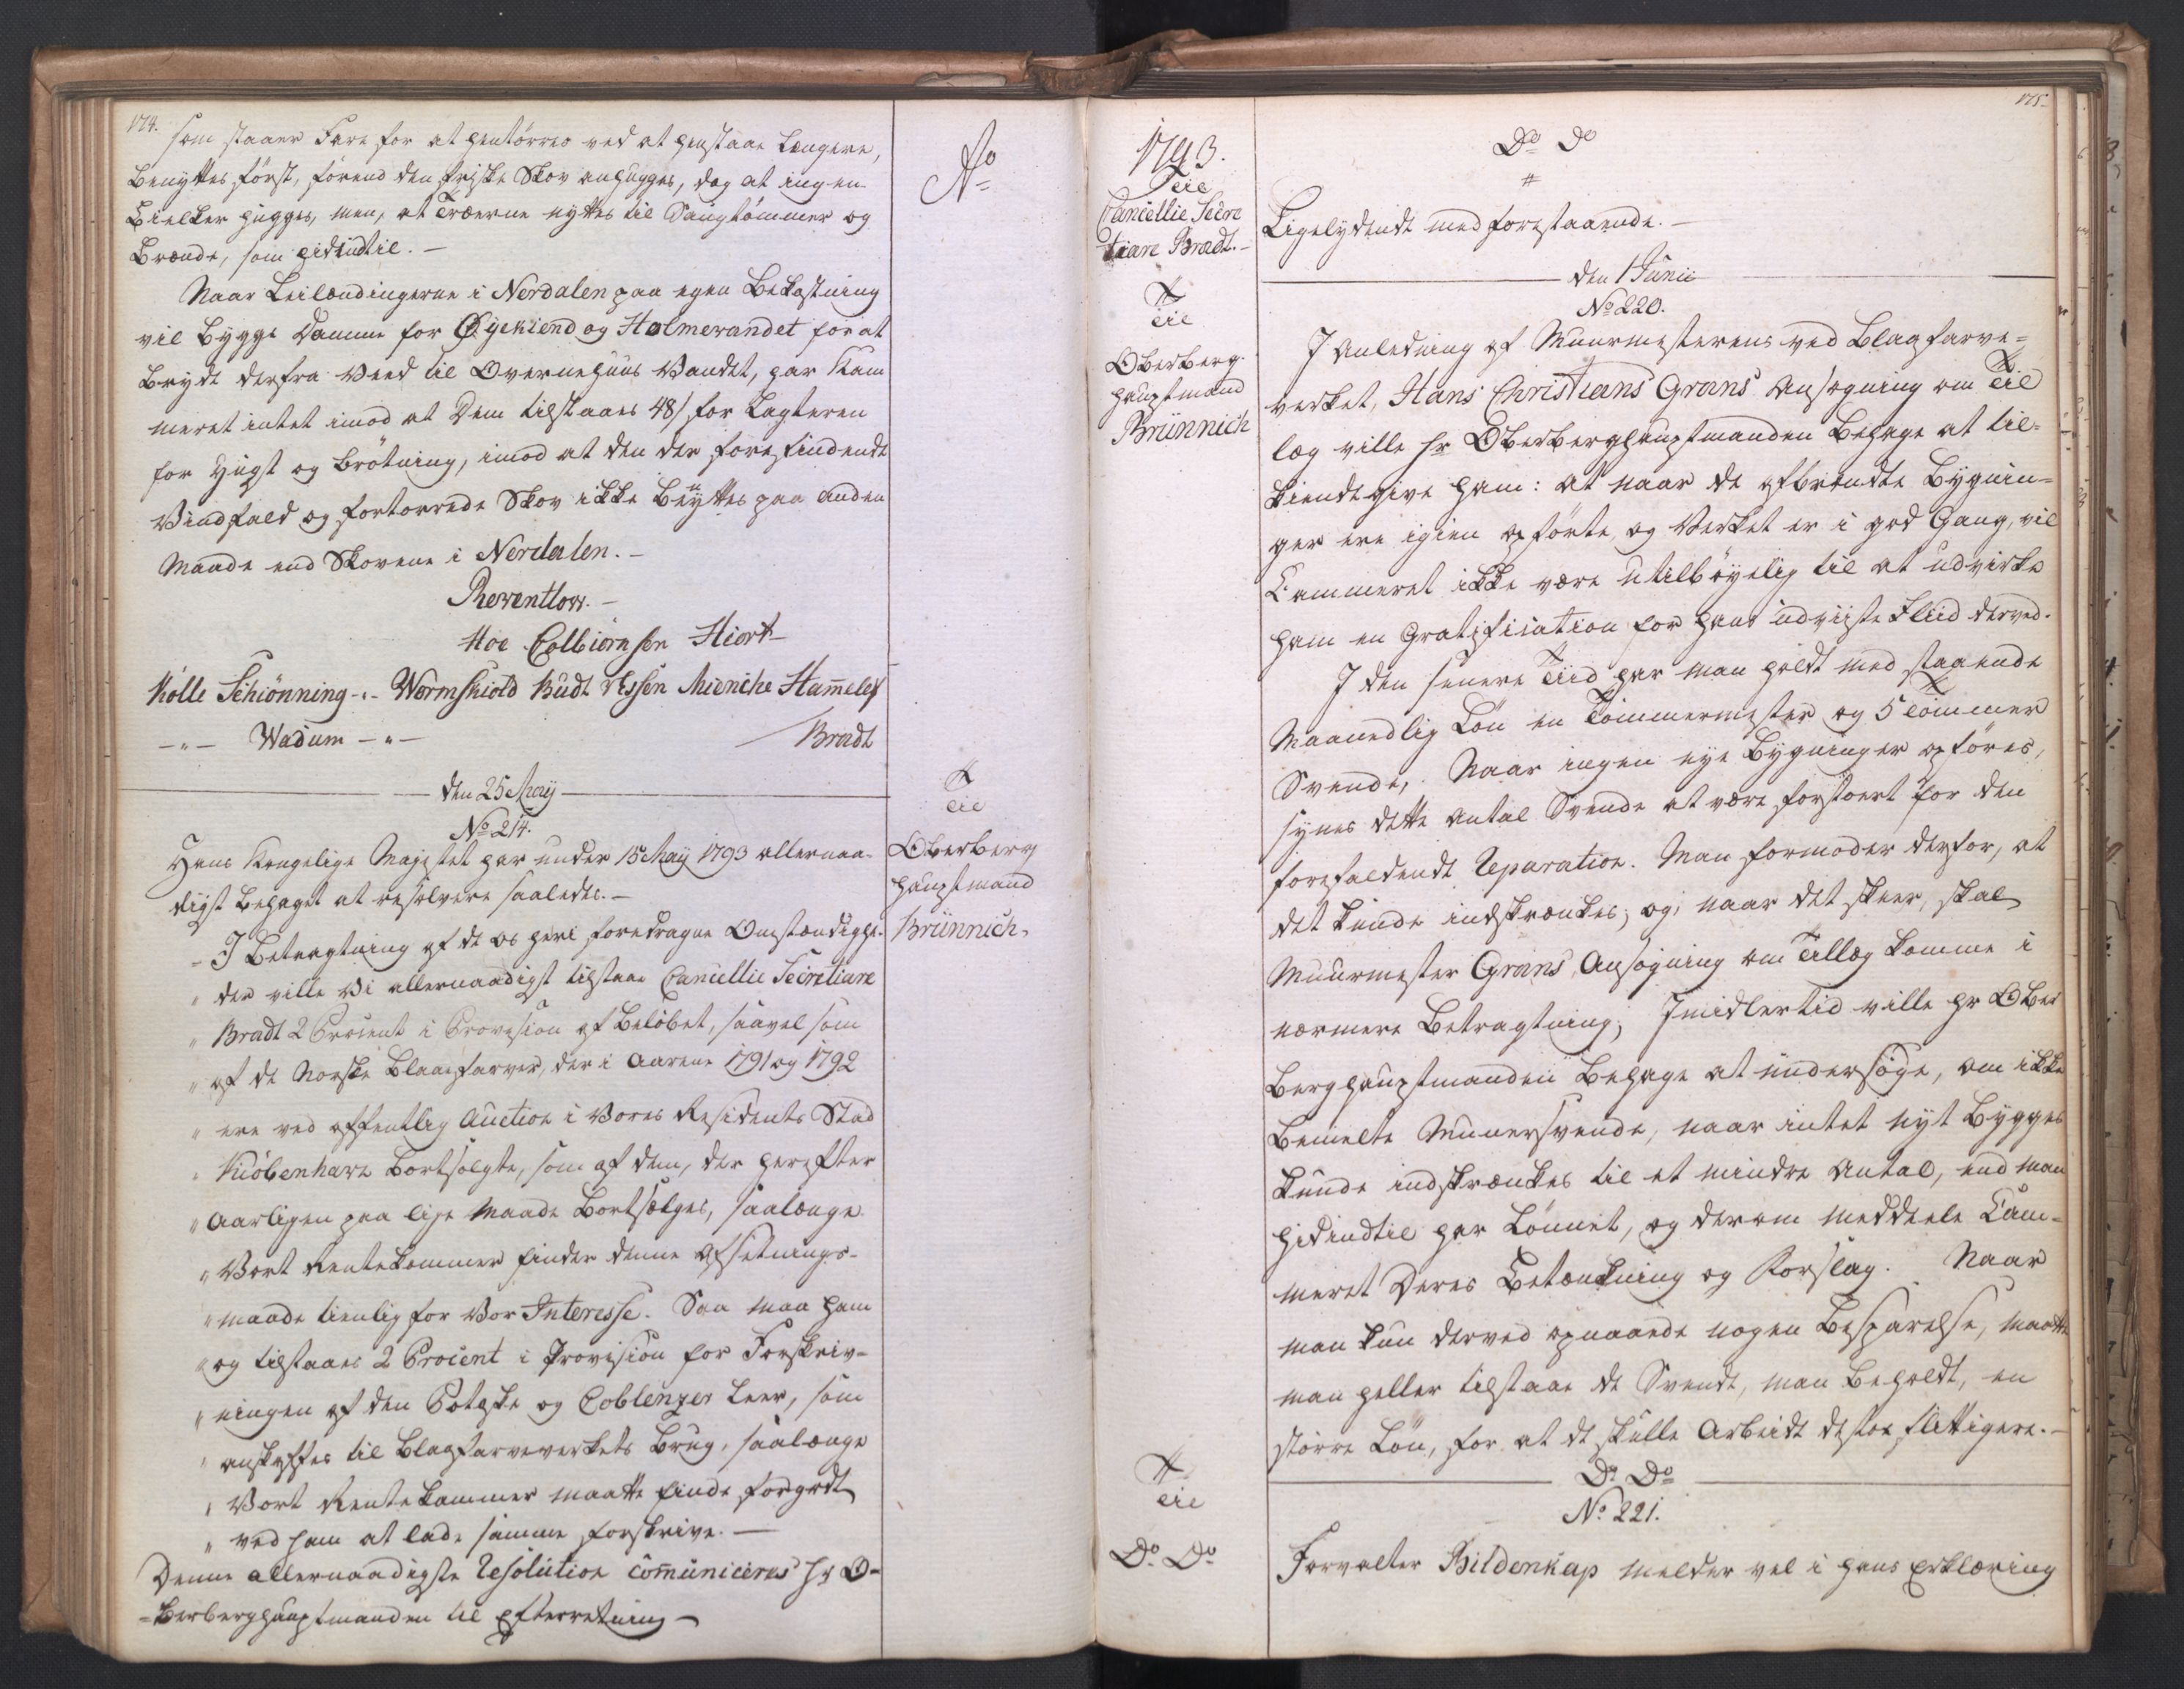 174.
som staaer Fare for at hentörres ved at henstaae Længere,
benyttes först, förend den friske Skov anhugges, dog at ingen
Bielker hugges, men, at Træerne nyttes til Saugtömmer og
Brænde, som hidindtil. –
Naar Leilændingerne i Nerdalen paa egen Bekostning
vil bygge Damme for Øyekiend og Holmevandet for at
bryde derfra Veed til Overnehuus Vandet, har Kam
meret intet imod at Dem tilstaaes 48/ for Lagteren
for Hugst og Brötning, imod at den der forefindende
Vindfald og fortorrede Skov ikke beyttes paa anden
Maade end Skovene i Nerdalen. –
Reventlow. –
Hoe Colbiörnsen Hiort –
Kölle Schiönning -„- Wormskiold Budt Essen Mienche Hamelef
-„- Wadum -„- Bradt
den 25 May
No 214.
Hans Kongelige Majestet har under 15 May 1793 allernaa-
digst behaget at resolvere saaledes. –
„ I Betragtning af de os heri foredragne Omstændighe-
„ der ville Vi allernaadigst tilstaae Cancellie Secretiare
„ Bradt 2 Procent i Provision af Beløbet, saavel som
„ af de Norske Blaaefarver, der i Aarene 1791 og 1792
„ ere ved offentlig Auction i Vores Residents Stad
„ Kiöbenhavn bortsolgte, som af dem, der herefter
„ aarligen paa lige Maade bortsælges, saalænge
„ Vort Rentekammer finder denne Afsetnings-
„ maade tienlig for Vor Interesse. Saa maa ham
„ og tilstaaes 2 Procent i Provision for Forskriv-
„ ningen af den Potaske og Coblenzer Leer, som
„ anskaffes til Blaafarveverkets Brug, saalænge
„ Vort Rentekammer maatte finde forgodt
„ ved ham at lade samme forskrive. –
Denne allernaadigste Resolution communiceres Hr O-
berberghauptmanden til Efterretning –
Ao
Til
Oberberg
hauptmand
Brünnich.
1793.
Til
Cancellie Secre
tiare Bradt. –
Til
Oberberg-
hauptmand
Brünnich
Til
Do Do
175.
Do Do
Ligelydende med forestaaende. –
den 1 Junii
No 220.
I Anledning af Muurmesterens ved Blaafarve-
verket, Hans Christians Grans Ansøgning om Til
læg ville Hr Oberberghauptmanden behage at til-
kiendegive ham: at naar de afbrændte Bygnin-
ger ere igien opförte, og Verket er i god Gang, vil
Cammeret ikke være utilböyelig til at udvirke
ham en Gratification for hans udviiste Fliid derved.
I den senere Tiid har man holdt med staaende
Maanedlig Lön en Tömmermester og 5 Tömmer
Svende, Naar ingen nye Bygninger opföres,
synes dette Antal Svende at være forstoert for den
forefaldende Reparation. Man formoder derfor, at
det kunde indskrænkes; og, naar det skeer, skal
Muurmester Grans Ansøgning om Tillæg komme i
nærmere Betragtning; Imidlertid ville Hr Ober
berghauptmanden behage at undersöge, om ikke
bemelte Muuersvende, naar intet nyt bygges
kunde indskrænkes til et mindre Antal, end man
hidindtil har lönnet, og derom meddeele Cam-
meret Deres Betænkning og Forslag. Naar
man kun derved opnaaede nogen Besparelse, maatte
man heller tilstaae de Svende, man beholdt, en
större Lön, for at de skulle arbeide destoe flittigere. –
Do Do
No 221.
Forvalter Bildenkap melder vel i hans Erklæring